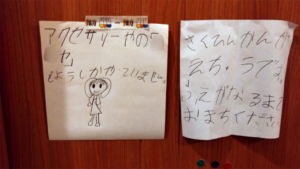 アクセサリーやの「
せ」
しようしかかていません。
さくひんかんが
えち。うです。
うえがなるまで
おまちください